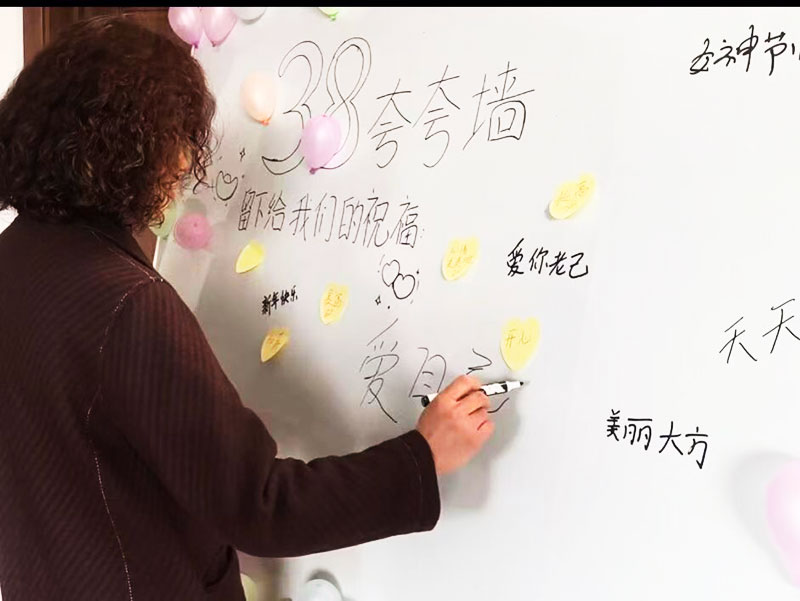 38夸夸墙
女神节
留下给我们的祝福:
爱你老己
新年快乐
开心
天天
爱自己
美丽大方